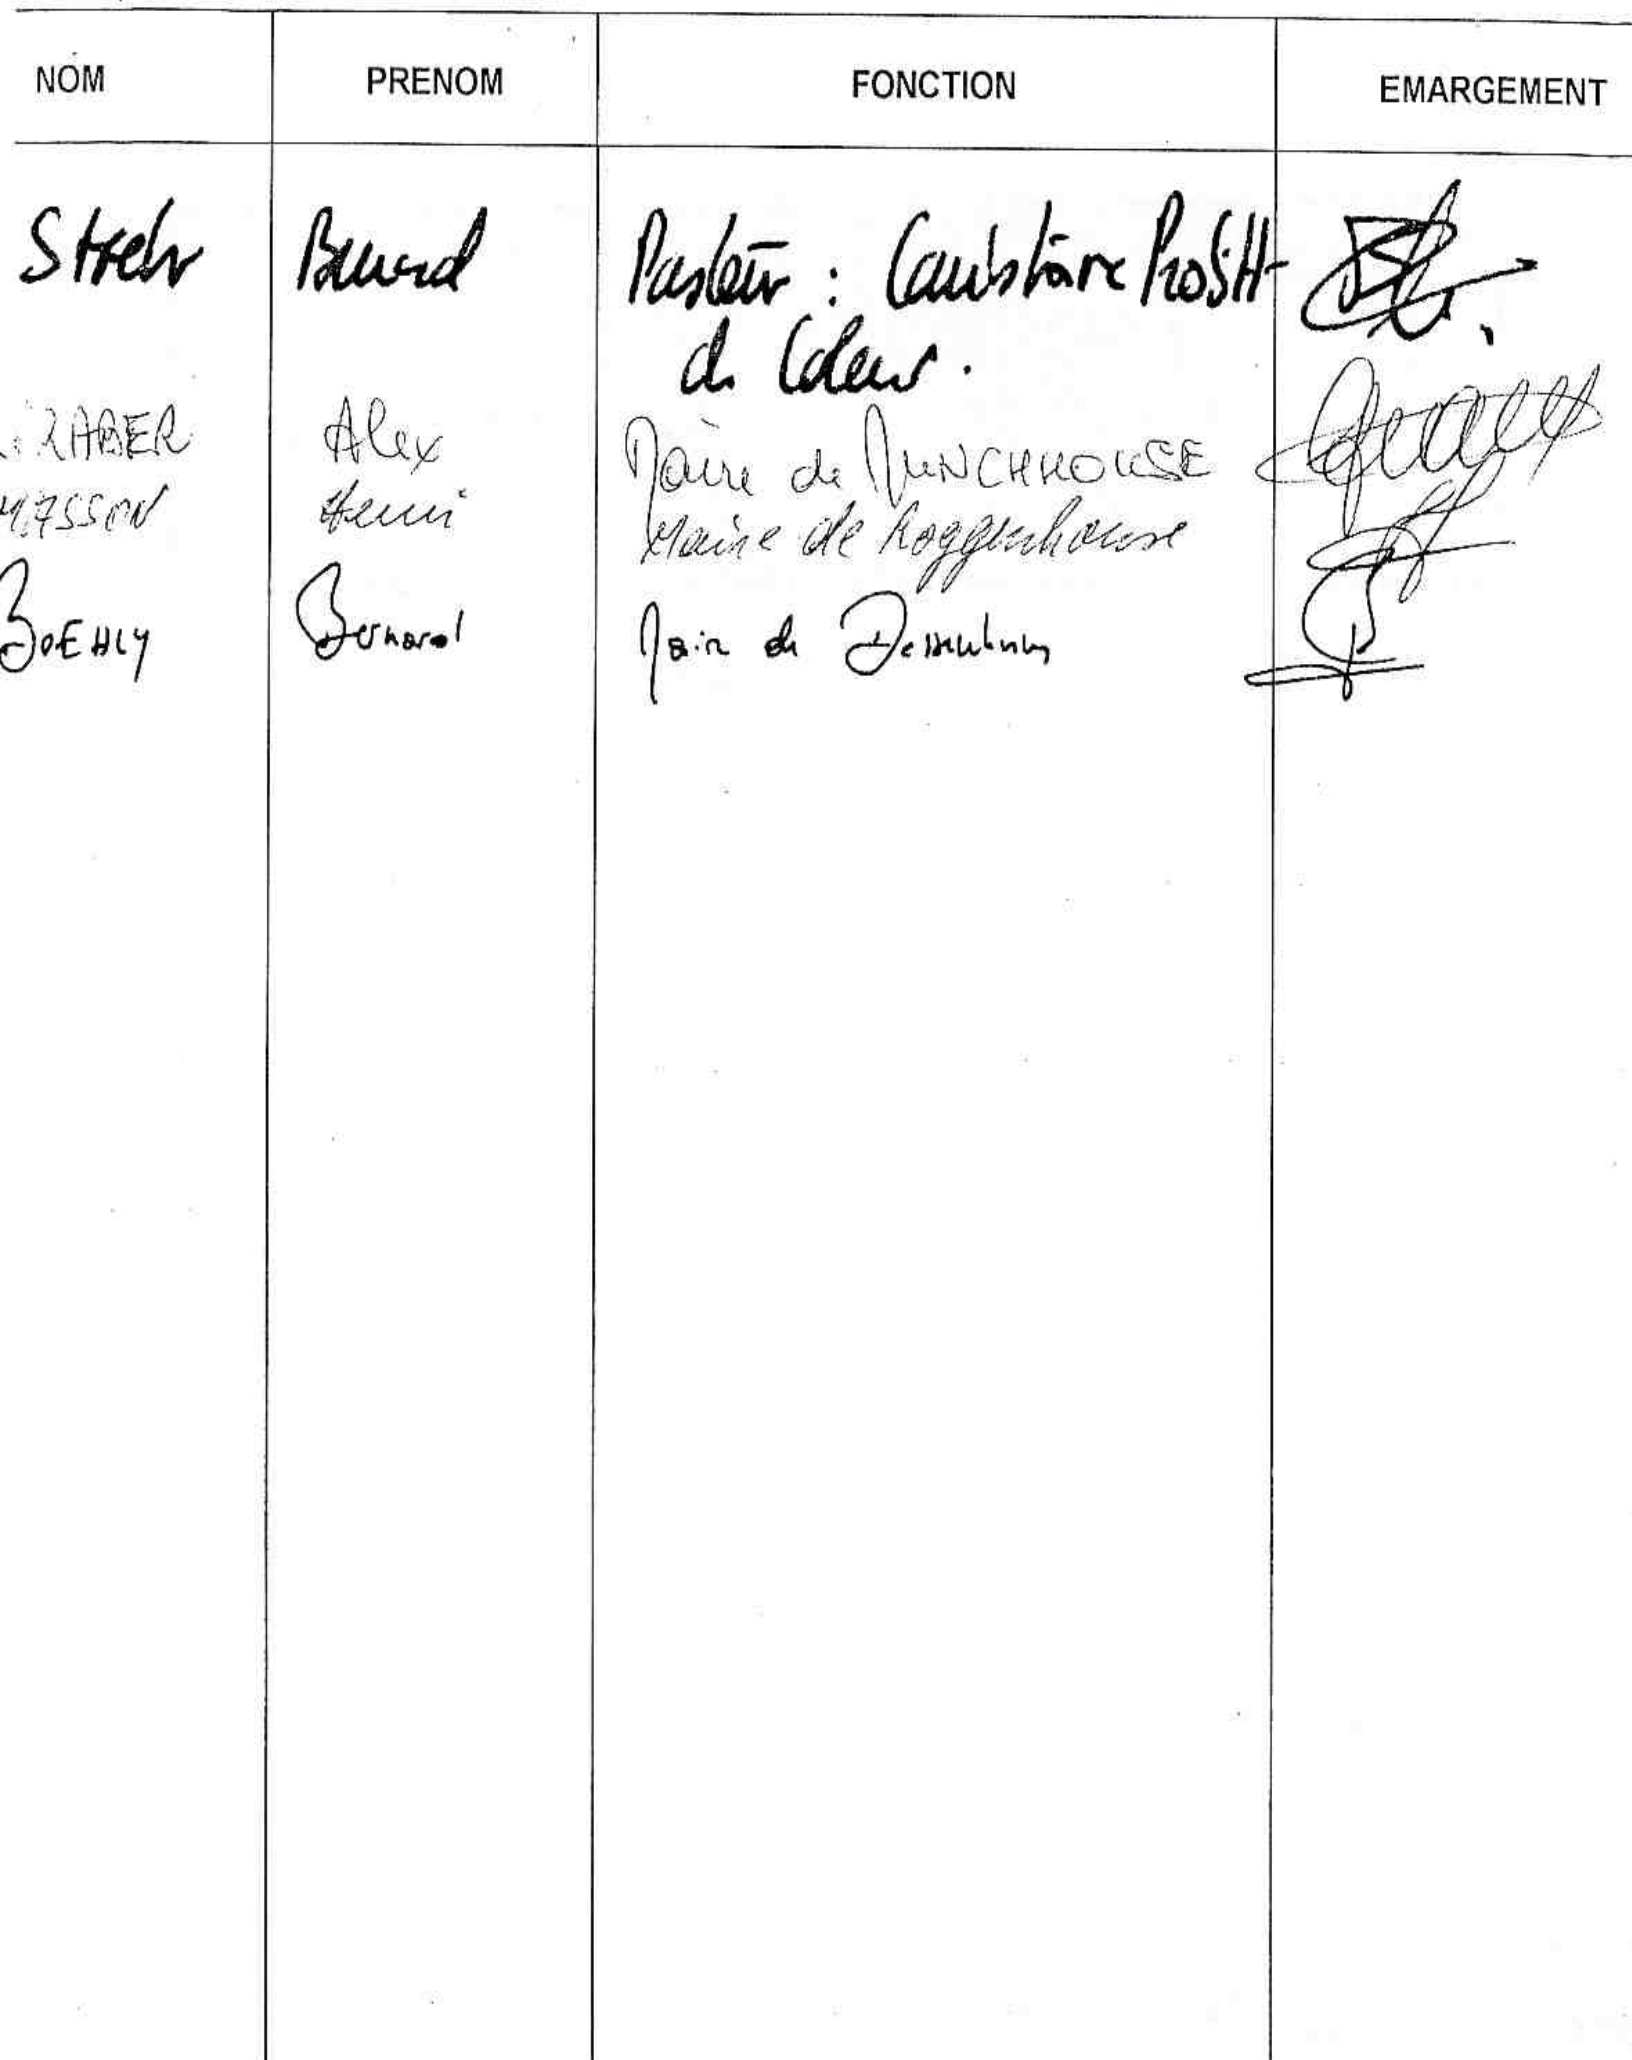 NOM PRENOM FONCTION EMARGEMENT
Strehr Bernard Pasteur : Consistoire
de Colmar.
Alex Maire de MUNCHHOUSE
MASSON Henri Maire de Roggenhouse
BOEHLY Bernard Maire de Dessenheim